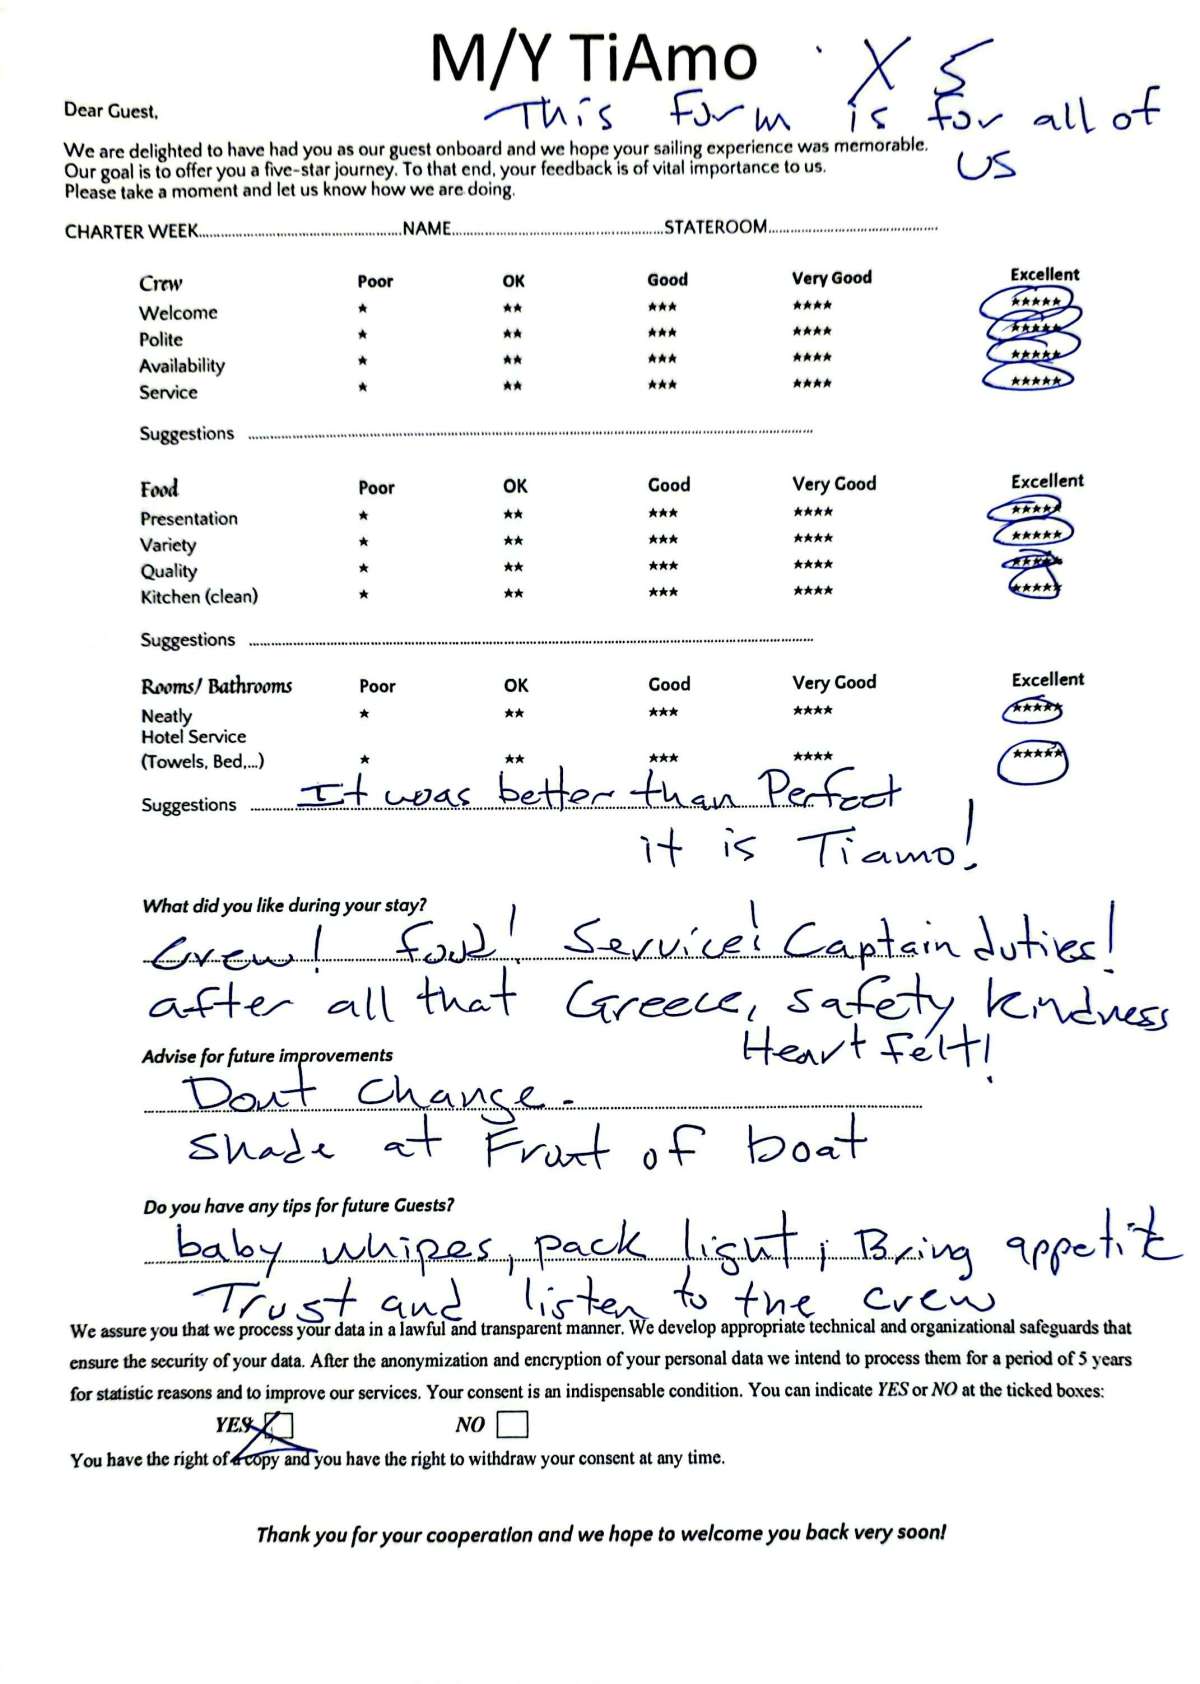 M/Y TiAmo X 5
Dear Guest, This Form is for all of
us
We are delighted to have had you as our guest onboard and we hope your sailing experience was memorable.
Our goal is to offer you a five-star journey. To that end, your feedback is of vital importance to us.
Please take a moment and let us know how we are doing.
CHARTER WEEK..................NAME..................STATEROOM..................
Crew Poor OK Good Very Good Excellent
Welcome ★ ★★ ★★★ ★★★★ ★★★★★
Polite ★ ★★ ★★★ ★★★★ ★★★★★
Availability ★ ★★ ★★★ ★★★★ ★★★★★
Service ★ ★★ ★★★ ★★★★ ★★★★★
Suggestions ..................
Food Poor OK Good Very Good Excellent
Presentation ★ ★★ ★★★ ★★★★ ★★★★★
Variety ★ ★★ ★★★ ★★★★ ★★★★★
Quality ★ ★★ ★★★ ★★★★ ★★★★★
Kitchen (clean) ★ ★★ ★★★ ★★★★ ★★★★★
Suggestions ..................
Rooms/ Bathrooms Poor OK Good Very Good Excellent
Neatly ★ ★★ ★★★ ★★★★ ★★★★★
Hotel Service
(Towels, Bed,...) ★ ★★ ★★★ ★★★★ ★★★★★
Suggestions It was better than Perfect
it is Tiamo!
What did you like during your stay?
Crew! food! Service! Captain duties!
after all that Greece, safety kindness
Heart felt!
Advise for future improvements
Dont Change.
shade at Front of boat
Do you have any tips for future Guests?
baby whipes, pack light, Bring appetite
Trust and listen to the crew
We assure you that we process your data in a lawful and transparent manner. We develop appropriate technical and organizational safeguards that
ensure the security of your data. After the anonymization and encryption of your personal data we intend to process them for a period of 5 years
for statistic reasons and to improve our services. Your consent is an indispensable condition. You can indicate YES or NO at the ticked boxes:
YES NO
You have the right of copy and you have the right to withdraw your consent at any time.
Thank you for your cooperation and we hope to welcome you back very soon!